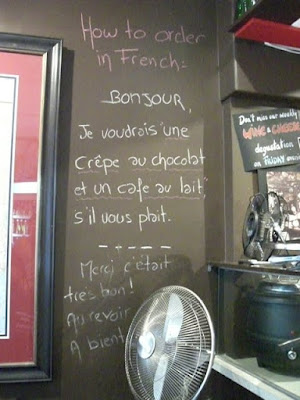 How to order
in French:
BONJOUR,
Je voudrais "une
crêpe au chocolat
et un cafe au lait",
s'il vous plait.
Merci c'était
très bon!
Au revoir
A bient
Don't miss our weekly
WINE & CHEESE
degustation
on FRIDAY